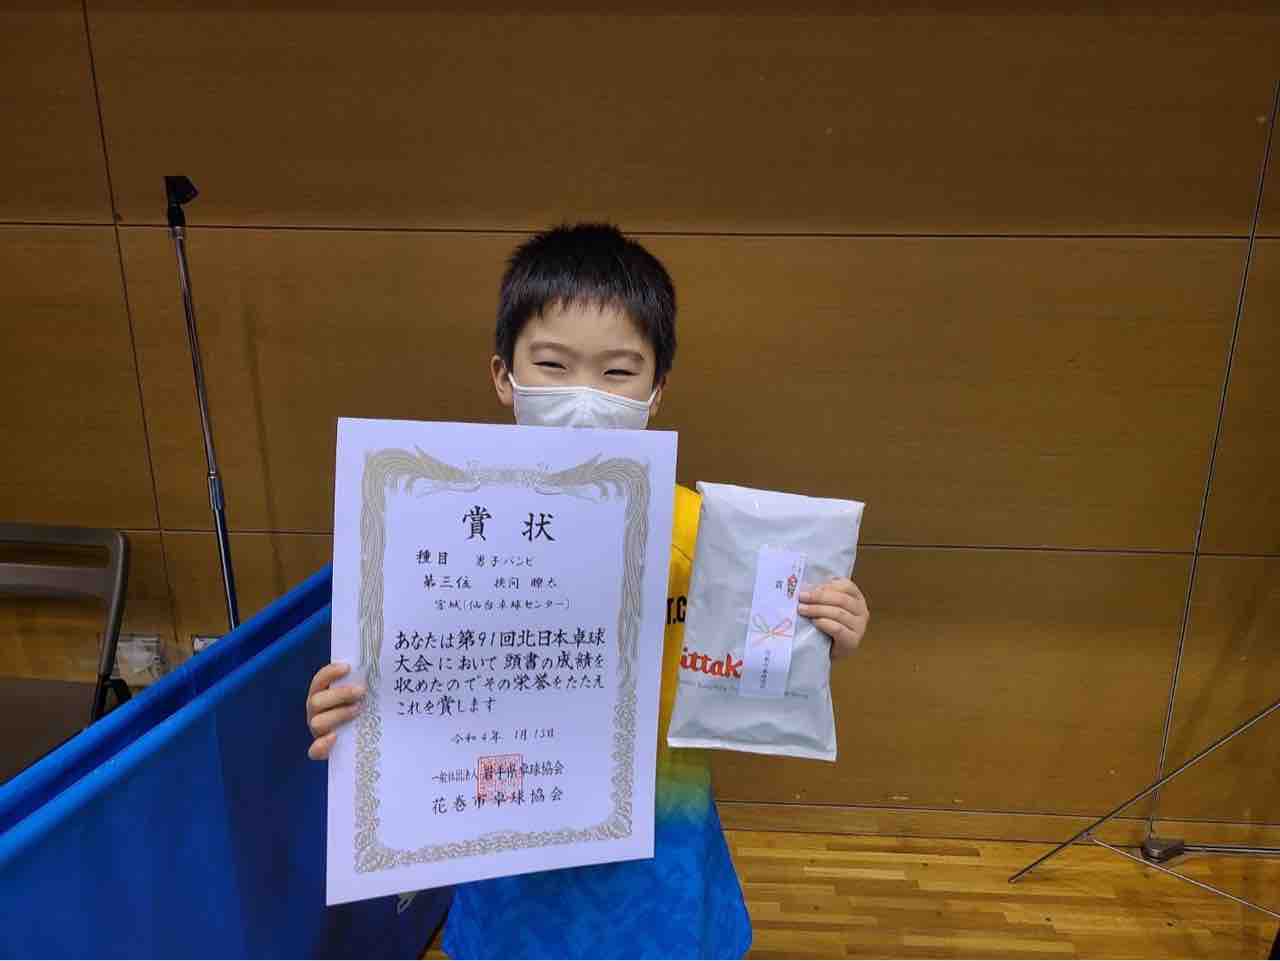 賞状
種目 男子バンビ
第三位
宮城(仙台卓球センター)
あなたは第91回北日本卓球
大会において頭書の成績を
収めたのでその栄誉をたたえ
これを賞します
令和4年 1月13日
一般社団法人 岩手県卓球協会
花巻市卓球協会
T.C
賞
ittak